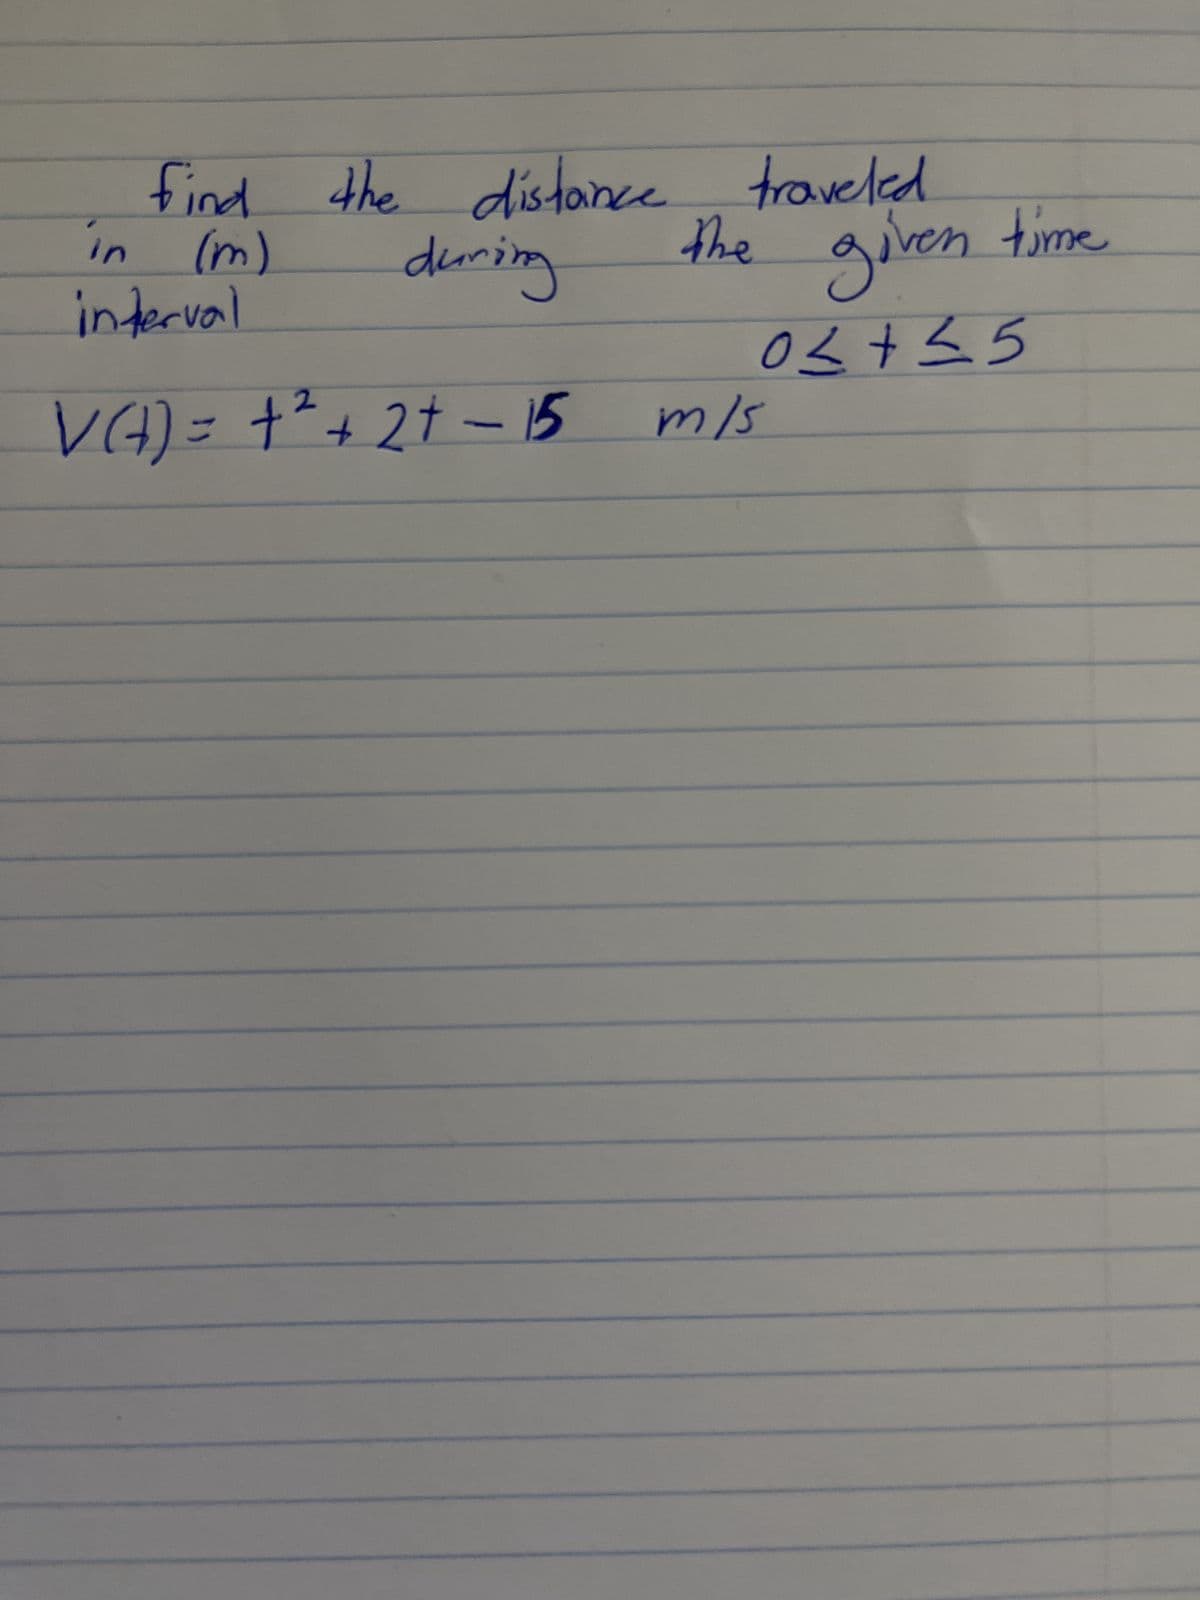 find the distance traveled
in (m) during the given time
interval
0 ≤ t ≤ 5
V(t) = t² + 2t - 15 m/s